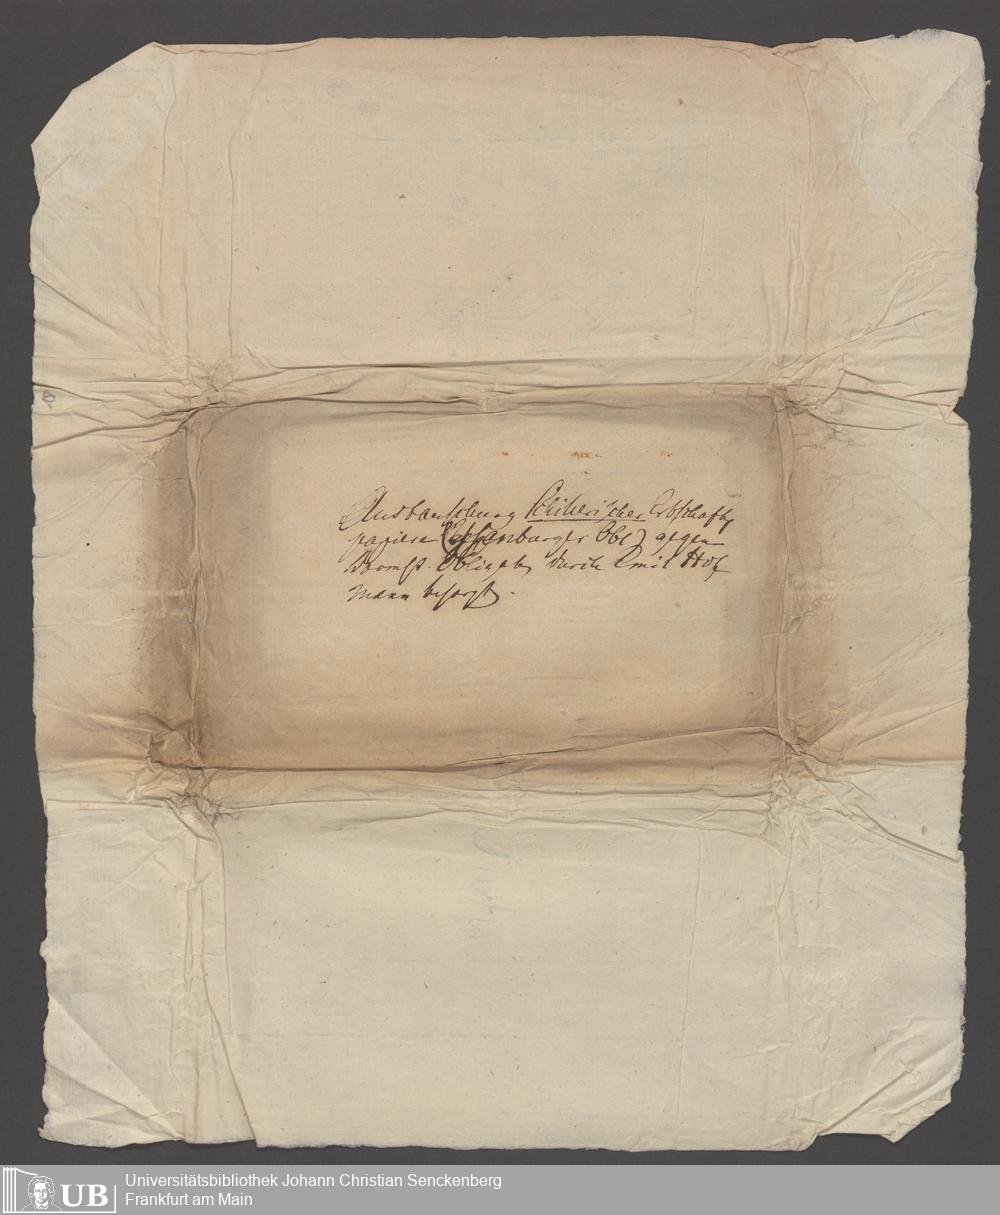 Austauschung Schillerischer Erbschafts
papiere (Ysenburger Obl) gegen
Darmst. Obligat. durch Emil Hof
mann besorgt.
UB
Universitätsbibliothek Johann Christian Senckenberg
Frankfurt am Main